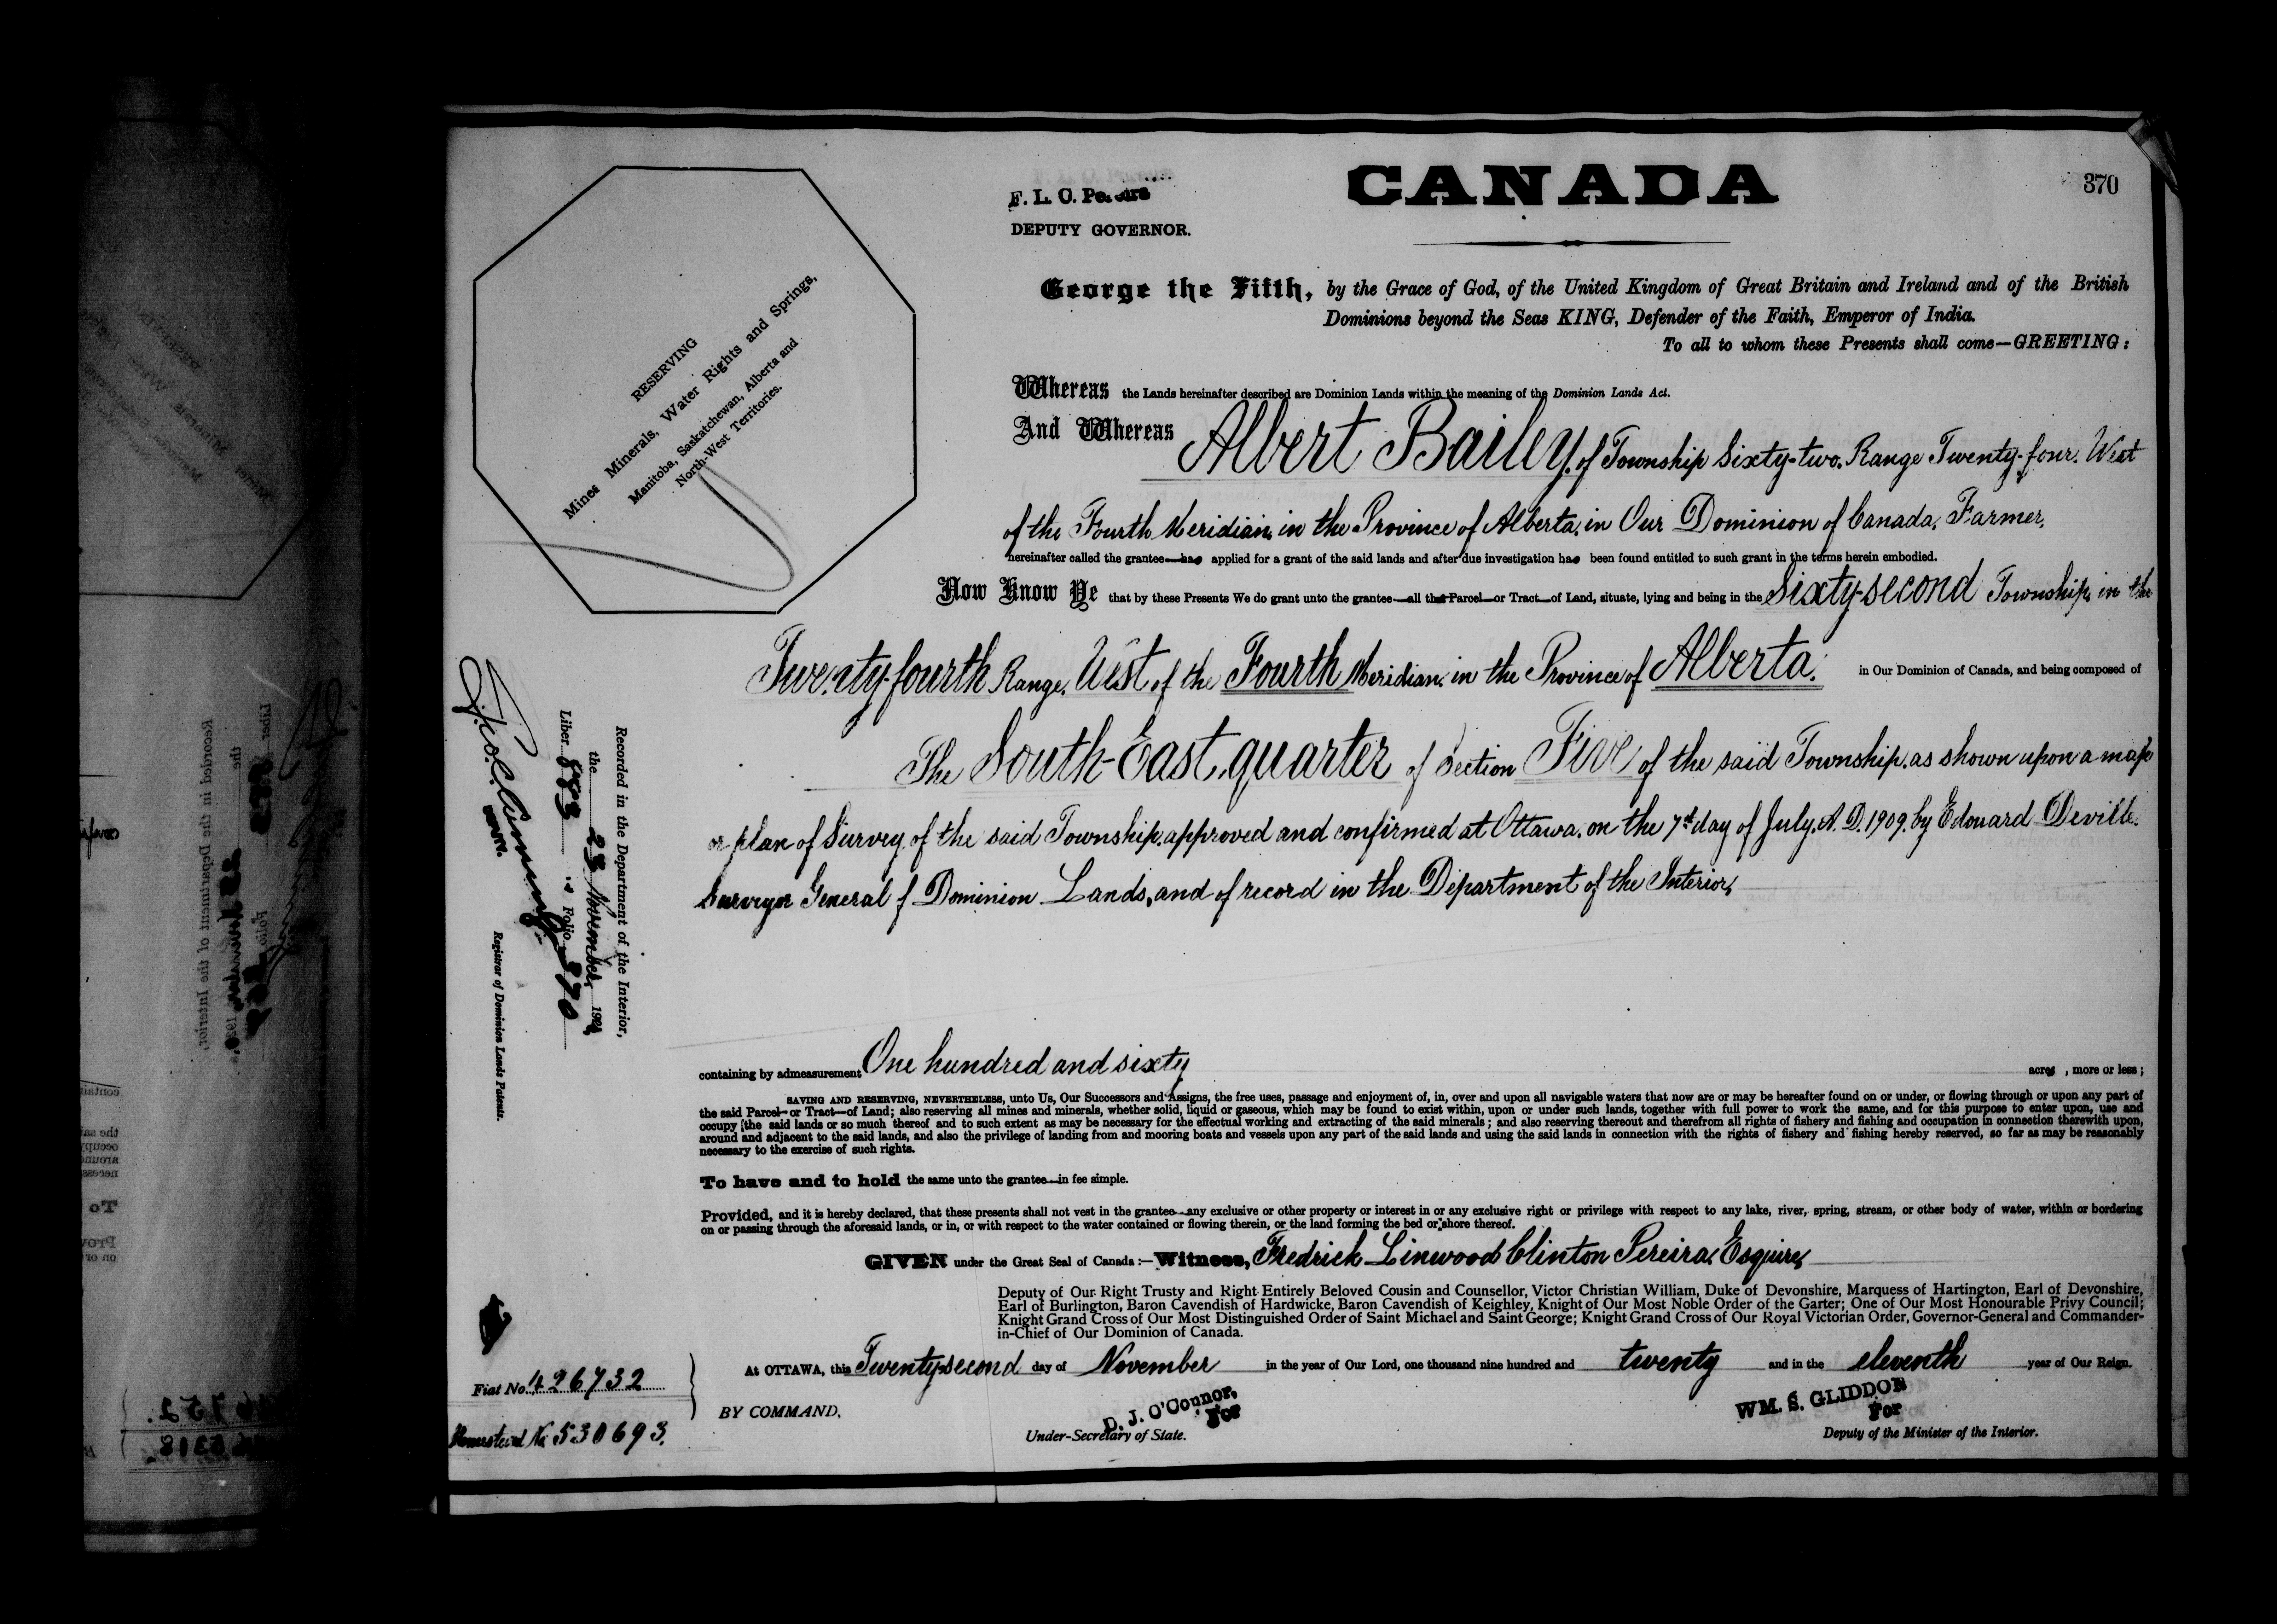 CANADA
370
F. L. C. Pereira
DEPUTY GOVERNOR.
George the Fifth, by the Grace of God, of the United Kingdom of Great Britain and Ireland and of the British
Dominions beyond the Seas KING, Defender of the Faith, Emperor of India.
To all to whom these Presents shall come—GREETING:
RESERVING
Mines Minerals, Water Rights and Springs,
Manitoba, Saskatchewan, Alberta and
North-West Territories.
Whereas the Lands hereinafter described are Dominion Lands within the meaning of the Dominion Lands Act.
And Whereas Albert Bailey, of Township Sixty-two, Range Twenty-four, West
of the Fourth Meridian, in the Province of Alberta, in Our Dominion of Canada, Farmer,
hereinafter called the grantee—has applied for a grant of the said lands and after due investigation has been found entitled to such grant in the terms herein embodied.
Now Know Ye that by these Presents We do grant unto the grantee—all that Parcel—or Tract—of Land, situate, lying and being in the Sixty-second Township, in the
Twenty-fourth Range, West of the Fourth Meridian, in the Province of Alberta, in Our Dominion of Canada, and being composed of
The South-East quarter of Section Five of the said Township, as shown upon a map
or plan of Survey of the said Township, approved and confirmed at Ottawa, on the 7th day of July, A. D. 1909, by Edouard Deville,
Surveyor General of Dominion Lands, and of record in the Department of the Interior,
Recorded in the Department of the Interior,
the 23 November, 192
Liber 883 Folio 370
Registrar of Dominion Lands Patents.
containing by admeasurement One hundred and sixty acres, more or less;
SAVING AND RESERVING, NEVERTHELESS, unto Us, Our Successors and Assigns, the free uses, passage and enjoyment of, in, over and upon all navigable waters that now are or may be hereafter found on or under, or flowing through or upon any part of
the said Parcel—or Tract—of Land; also reserving all mines and minerals, whether solid, liquid or gaseous, which may be found to exist within, upon or under such lands, together with full power to work the same, and for this purpose to enter upon, use and
occupy the said lands or so much thereof and to such extent as may be necessary for the effectual working and extracting of the said minerals; and also reserving thereout and therefrom all rights of fishery and fishing and occupation in connection therewith upon,
around and adjacent to the said lands, and also the privilege of landing from and mooring boats and vessels upon any part of the said lands and using the said lands in connection with the rights of fishery and fishing hereby reserved, so far as may be reasonably
necessary to the exercise of such rights.
To have and to hold the same unto the grantee—in fee simple.
Provided, and it is hereby declared, that these presents shall not vest in the grantee—any exclusive or other property or interest in or any exclusive right or privilege with respect to any lake, river, spring, stream, or other body of water, within or bordering
on or passing through the aforesaid lands, or in, or with respect to the water contained or flowing therein, or the land forming the bed or shore thereof.
GIVEN under the Great Seal of Canada:—Witness, Fredrick Linwood Clinton Pereira, Esquire,
Deputy of Our Right Trusty and Right Entirely Beloved Cousin and Counsellor, Victor Christian William, Duke of Devonshire, Marquess of Hartington, Earl of Devonshire,
Earl of Burlington, Baron Cavendish of Hardwicke, Baron Cavendish of Keighley, Knight of Our Most Noble Order of the Garter; One of Our Most Honourable Privy Council;
Knight Grand Cross of Our Most Distinguished Order of Saint Michael and Saint George; Knight Grand Cross of Our Royal Victorian Order, Governor-General and Commander-
in-Chief of Our Dominion of Canada.
At OTTAWA, this Twenty-second day of November in the year of Our Lord, one thousand nine hundred and twenty and in the eleventh year of Our Reign.
Fiat No. 426732
Homestead No. 530693.
BY COMMAND,
D. J. O'Connor,
For
Under-Secretary of State.
WM. S. GLIDDON
For
Deputy of the Minister of the Interior.